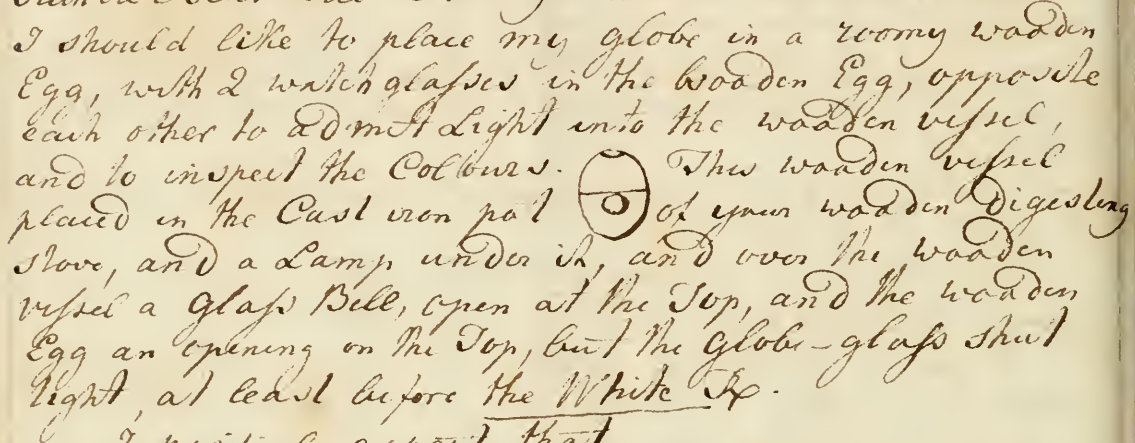 I should like to place my globe in a roomy wooden
Egg, with 2 watch glasses in the wooden Egg, opposite
each other to admit Light into the wooden vessel,
and to inspect the Colours. This wooden vessel
placed in the Cast iron pot of your wooden Digesting
stove, and a Lamp under it, and over the wooden
vessel a Glass Bell, open at the Top, and the wooden
Egg an opening on the Top, but the Globe-glass shut
tight, at least before the White
that